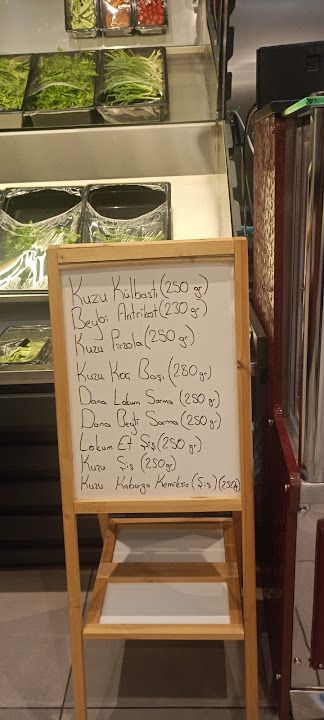 Kuzu Külbastı (250 gr)
Beybi Antrikot (230 gr)
Kuzu Pirzola (250 gr)
Kuzu Koç Başı (280 gr)
Dana Lokum Sarma (250 gr)
Dana Beyti Sarma (250 gr)
Lokum Et Şiş (250 gr)
Kuzu Şiş (250 gr)
Kuzu Kaburga Kemiksiz (Şiş) (250gr)